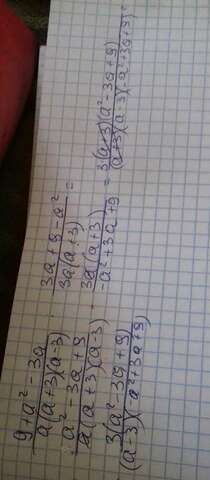 9+a²-3a 3a+9-a²
a(a+3)(a-3) 3a(a+3) =
a²-3a+9 3a(a+3) = 3(a+3)(a²-3a+9)
a(a+3)(a-3) -a²+3a+9 (a+3)(a-3)(-a²+3a+9) =
3(a²-3a+9)
(a-3)(-a²+3a+9)